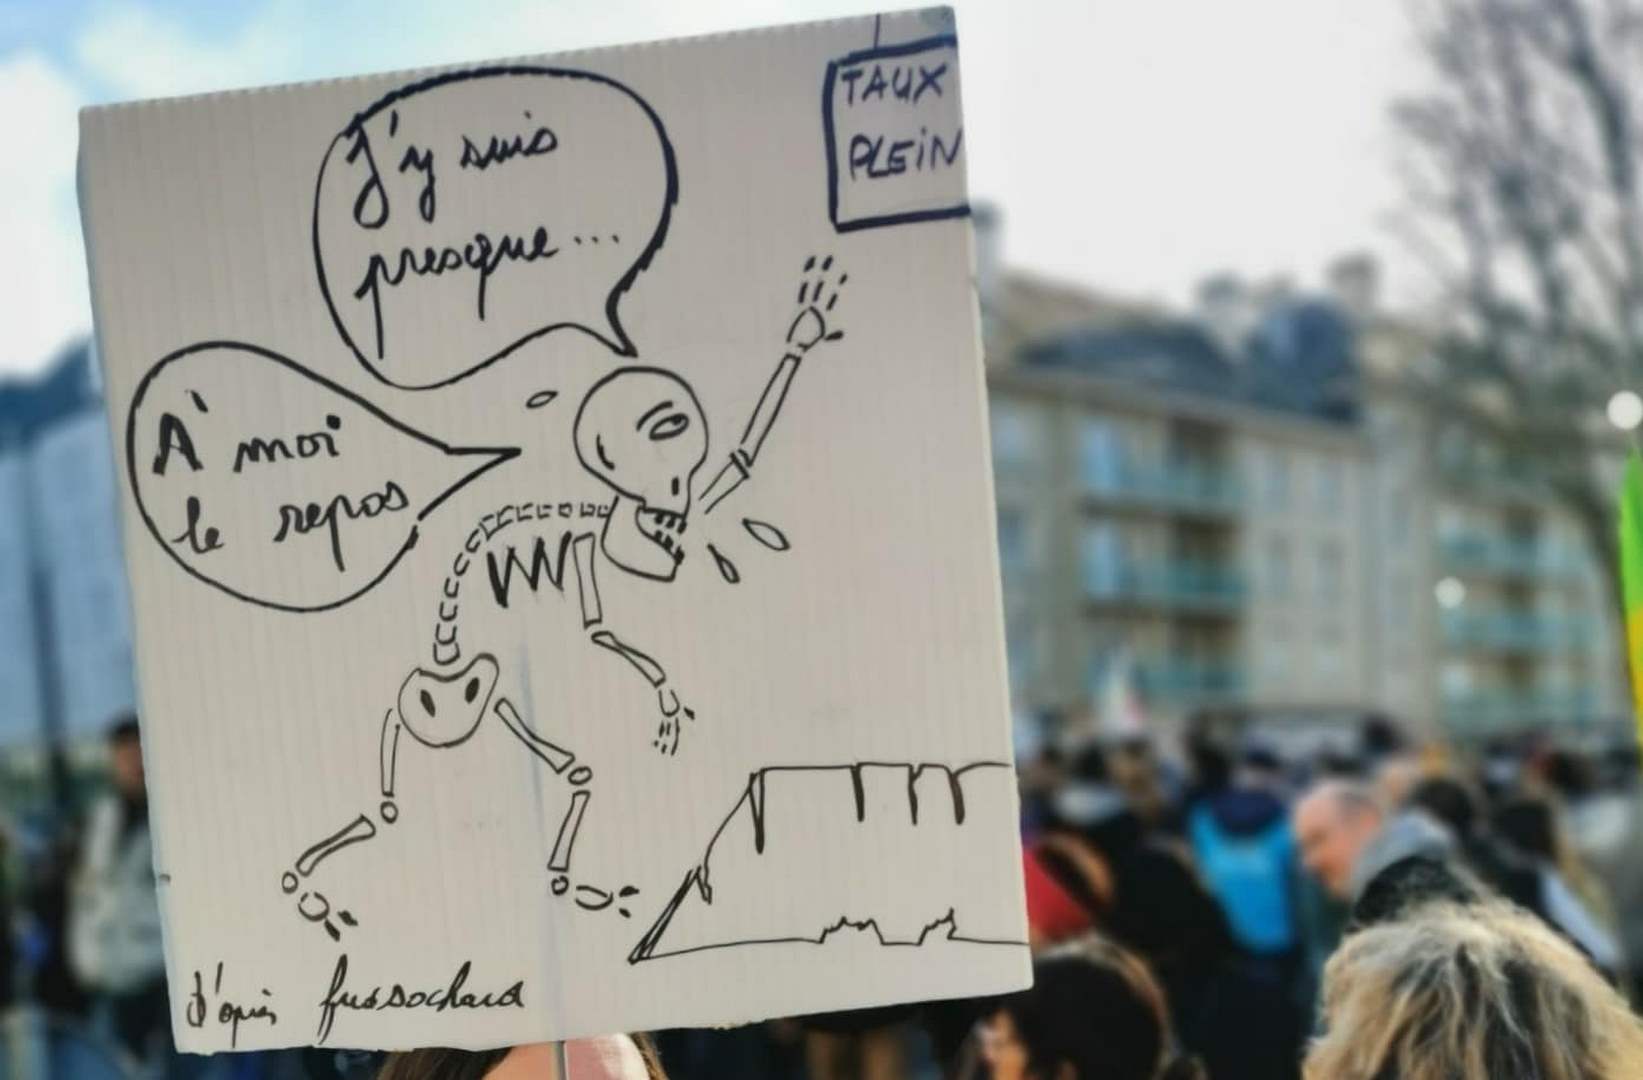 J'y suis
presque...
TAUX
PLEiN
À moi
le repos
d'après frussochard